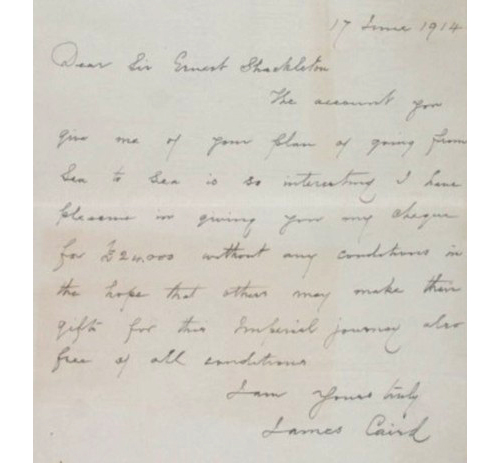 17 June 1914
Dear Sir Ernest Shackleton
The account you
give me of your plan of going from
Sea to Sea is so interesting I have
pleasure in giving you my cheque
for £24,000 without any conditions in
the hope that others may make their
gifts for this Imperial journey also
free of all conditions
I am Yours truly
James Caird